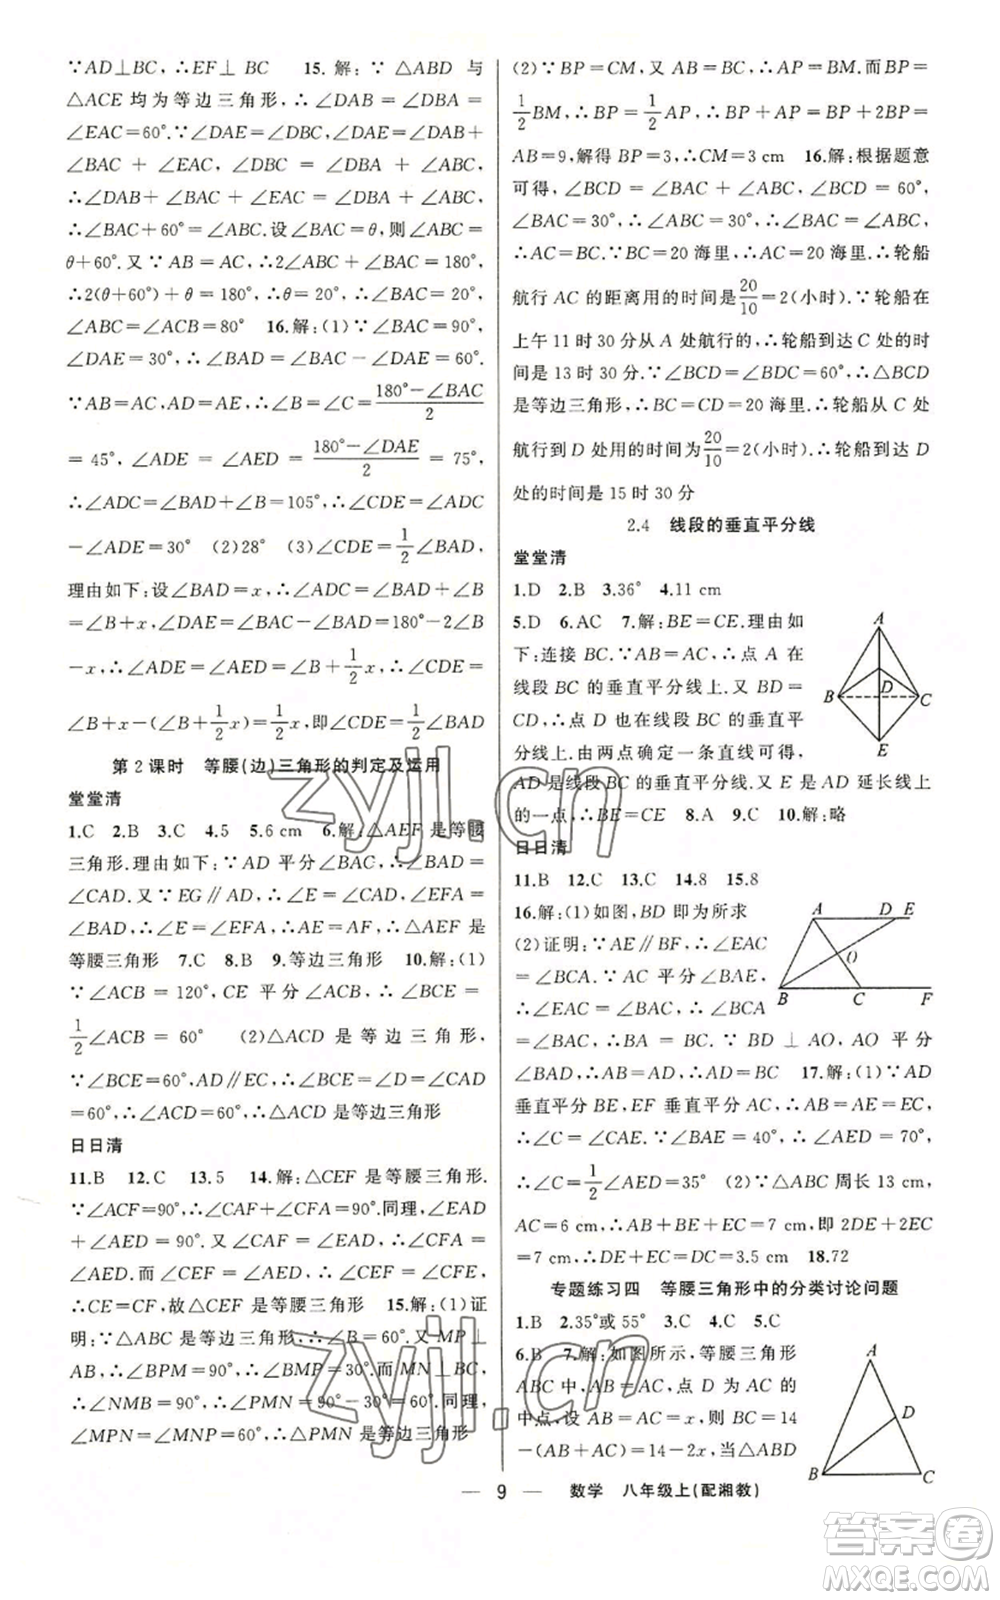 ∵AD⊥BC,∴EF⊥ BC　15.解:∵ △ABD 与
△ACE 均为等边三角形,∴∠DAB=∠DBA=
∠EAC=60°.∵∠DAE=∠DBC,∠DAE=∠DAB+
∠BAC + ∠EAC, ∠DBC = ∠DBA + ∠ABC,
∴∠DAB + ∠BAC + ∠EAC = ∠DBA + ∠ABC,
∴∠BAC+60°=∠ABC.设∠BAC=θ,则∠ABC=
θ+60°.又∵AB=AC,∴2∠ABC+∠BAC=180°,
∴2(θ+60°)+θ=180°,∴θ=20°,∴∠BAC=20°,
∠ABC=∠ACB=80°　16.解:(1)∵∠BAC=90°,
∠DAE=30°,∴∠BAD=∠BAC−∠DAE=60°.
∵AB=AC,AD=AE,∴∠B=∠C=(180°−∠BAC)/2
= 45°, ∠ADE = ∠AED = (180°−∠DAE)/2 = 75°,
∴∠ADC=∠BAD+∠B=105°,∴∠CDE=∠ADC
−∠ADE=30°　(2)28°　(3)∠CDE=1/2∠BAD
理由如下:设∠BAD=x,∴∠ADC=∠BAD+∠B
=∠B+x,∠DAE=∠BAC−∠BAD=180°−2∠B
−x,∴∠ADE=∠AED=∠B+1/2x,∴∠CDE=
∠B+x−(∠B+1/2x)=1/2x,即∠CDE=1/2∠BAD
第 2 课时　等腰(边)三角形的判定及运用
堂堂清
1.C　2.B　3.C　4.5　5.6 cm　6.解:△AEF是等腰
三角形.理由如下:∵AD平分∠BAC,∴∠BAD=
∠CAD.又∵EG∥AD,∴∠E=∠CAD,∠EFA=
∠BAD,∴∠E=∠EFA,∴AE=AF,∴△AEF是
等腰三角形　7.C　8.B　9.等边三角形　10.解:(1)
∵∠ACB = 120°,CE 平分∠ACB,∴∠BCE =
1/2∠ACB = 60°　(2)△ACD 是等边三角形.
∵∠BCE=60°,AD∥EC,∴∠BCE=∠D=∠CAD
=60°,∴∠ACD=60°,∴△ACD是等边三角形
日日清
11.B　12.C　13.5　14.解:△CEF 是等腰三角形.
∵∠ACF=90°,∴∠CAF+∠CFA=90°.同理,∠EAD
+∠AED = 90°.又∵∠CAF = ∠EAD,∴∠CFA=
∠AED.而∠CEF=∠AED,∴∠CEF=∠CFA,
∴CE=CF,故△CEF是等腰三角形　15.解:(1)证
明:∵△ABC 是等边三角形,∴∠B=60°.又MP⊥
AB,∴∠BPM=90°,∴∠BMP=30°.而MN⊥BC,
∴∠NMB=90°,∴∠PMN=90°−30°=60°.同理,
∠MPN=∠MNP=60°,∴△PMN是等边三角形
(2)∵BP=CM,又AP=CM,∴AP=BM.而BP=
1/2BM,∴BP=1/2AP,∴AB=AP+BP=2BP+BP=
AB=9,解得BP=3,∴CM=3 cm　16.解:根据题意
可得,∠BCD=∠BAC+∠ABC,∠BCD=60°,
∠BAC=30°,∴∠ABC=30°,∴∠BAC=∠ABC,
∴AC=BC.∵BC=20海里,∴AC=20海里,∴轮船
航行AC的距离用的时间是20/10=2(小时).∵轮船在
上午11时30分从A处航行的,∴轮船到达C处的时
间是13时30分.∵∠BCD=∠BDC=60°,∴△BCD
是等边三角形,∴BC=CD=20海里.∴轮船从C处
航行到D处用的时间是20/10=2(小时),∴轮船到达D
处的时间是15时30分
2.4　线段的垂直平分线
堂堂清
1.D　2.B　3.36°　4.11 cm
5.D　6.AC　7.解:BE=CE.理由如
下:连接BC.∵AB=AC,∴点A在
线段BC的垂直平分线上.又BD=
CD,∴点D也在线段BC的垂直平
分线上.由两点确定一条直线可得,
AD是线段BC的垂直平分线.又E是AD延长线上
的一点,∴BE=CE　8.A　9.C　10.解:略
日日清
11.B　12.C　13.C　14.8　15.8
16.解:(1)如图,BD即为所求
(2)证明:∵AE∥BF,∴∠EAC
=∠BCA.∵AC平分∠BAE,
∴∠EAC=∠BAC,∴∠BCA
=∠BAC,∴BA=BC.∵BD⊥AO,AO平分
∠BAD,∴AB=AD,∴AD=BC　17.解:(1)∵AD
垂直平分BE,EF垂直平分AC,∴AB=AE=EC,
∴∠C=∠CAE.∵∠BAE=40°,∴∠AED=70°,
∴∠C=1/2∠AED=35°　(2)∵△ABC周长13 cm,
AC=6 cm,∴AB+BE+EC=7 cm,即2DE+2EC
=7 cm,∴DE+EC=DC=3.5 cm　18.72
专题练习四　等腰三角形中的分类讨论问题
1.B　2.35°或55°　3.C　4.C　5.C
6.B　7.解:如图所示,等腰三角形
ABC中,AB=AC,点D为AC的
中点,设AB=AC=x,则BC=14
−(AB+AC)=14−2x,当△ABD
A
B
D
C
E
A
D
E
O
B
C
F
A
D
B
C
9
数学　八年级上(配湘教)
zyjl.cn
zyjl.cn
答案圈
MXQE.COM